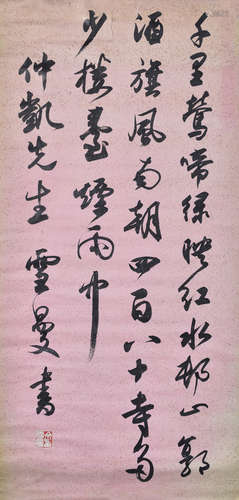 千里鶯啼綠映紅水邨山郭
酒旗風南朝四百八十寺多
少樓臺煙雨中
仲凱先生 雲曼書